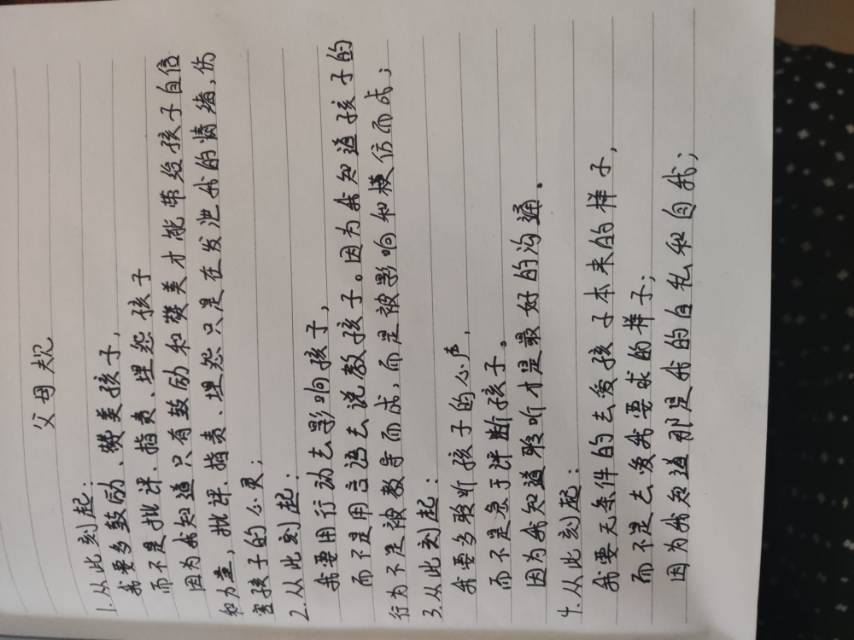 父母规
1.从此刻起:
我要多鼓励、赞美孩子,
而不是批评、指责、埋怨孩子
因为我知道只有鼓励和赞美才能带给孩子自信
和力量,批评、指责、埋怨只是在发泄我的情绪,伤
害孩子的心灵;
2.从此刻起:
我要用行动去影响孩子,
而不是用言语去说教孩子。因为我知道孩子的
行为不是被教导而成,而是被影响和模仿而成;
3.从此刻起:
我要多聆听孩子的心声,
而不是急于评断孩子。
因为我知道聆听才是最好的沟通。
4.从此刻起:
我要无条件的去爱孩子本来的样子,
而不是去爱我要求的样子;
因为我知道那是我的自私和自我;